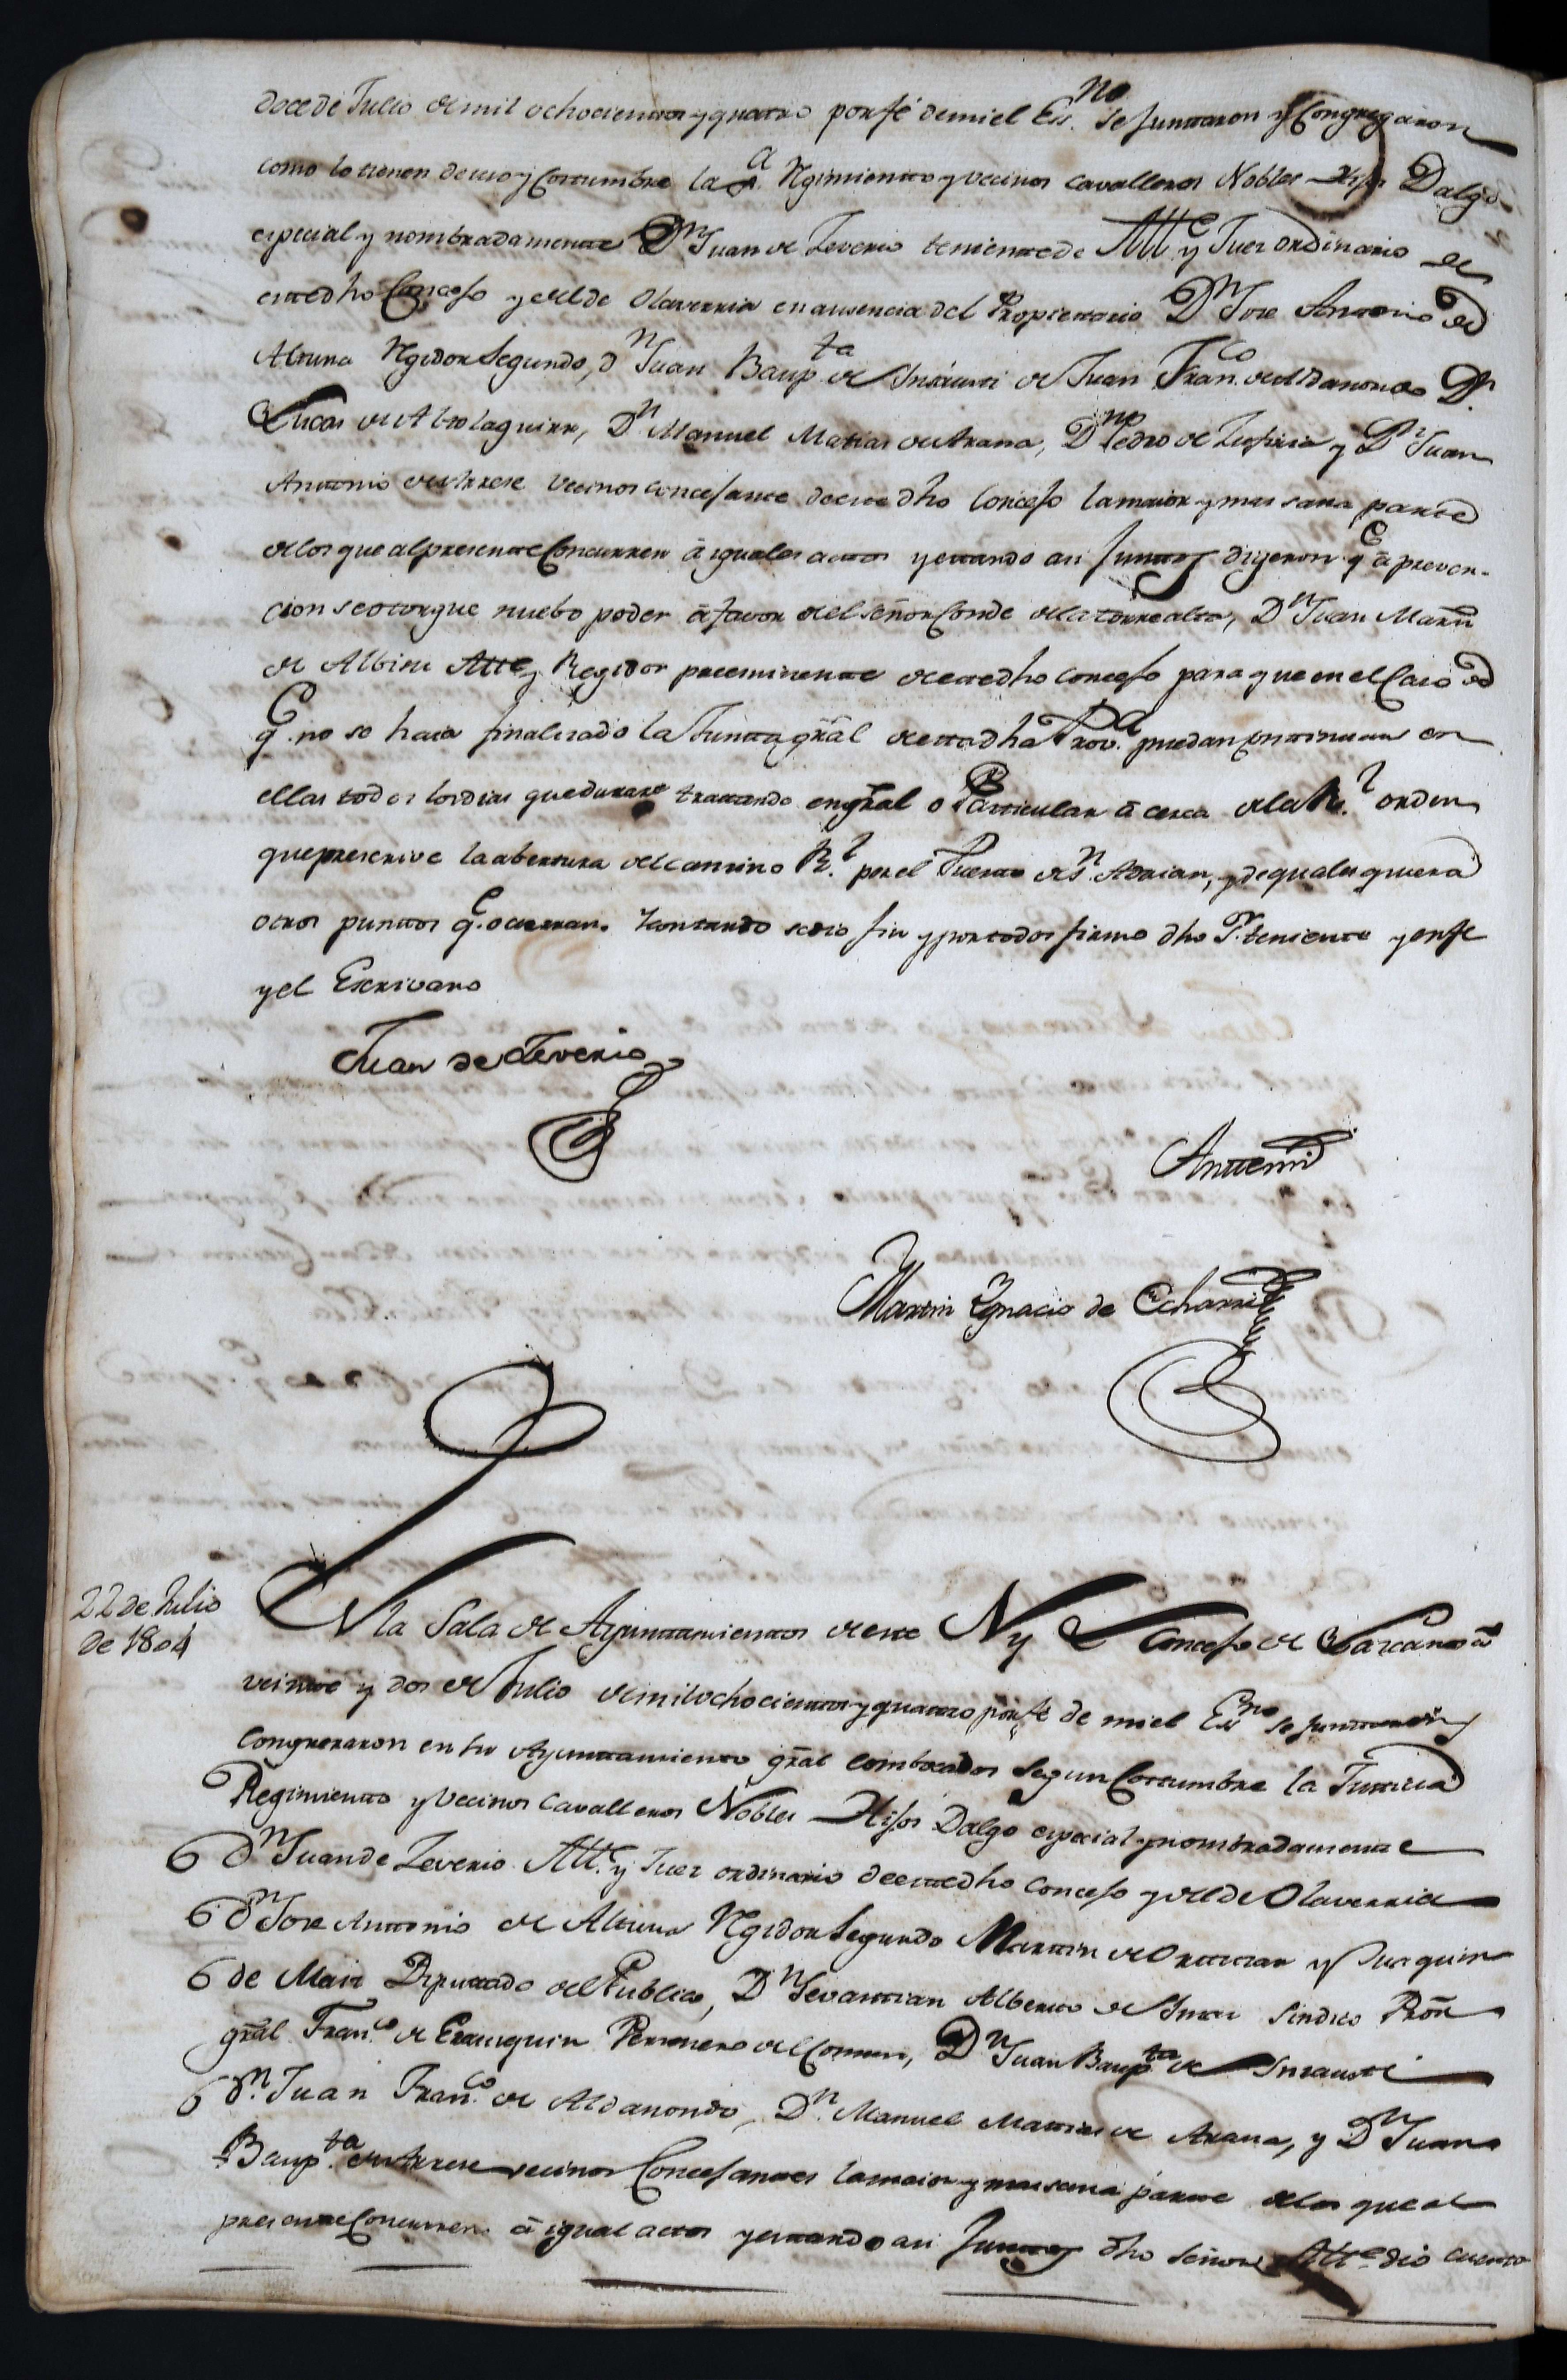 doce de Julio de mil ochocientos y quatro por fé de mi el Ess.no se Junttaron y Congregaron
como lo tienen de uso y Costumbre la Rgimientto y vecinos cavalleros Nobles Hijos Dalgo
especial y nombradamente Dn Juan de Zeverio teniente de Alle y Juez ordinario de
este dho Concejo y el de Olaverria en ausencia del Propiettario Dn Jose Antonio de
Altuna Rgidor Segundo, dn Juan Baup.ta de Insausti de Juan Fran.co de Aldanondo Dn
Lucas de Albolaguirre, Dn Manuel Matias de Arana, Dn Pedro de y Dn Juan
Anttonio de Arrese vecinos concejante de este dho Concejo la maior y mas sana parte
de los que al presente Concurren á iguales actos y estando asi Junttos dijeron q.e á preven-
cion se otorgue nuebo poder á favor del señor Conde de la torre alta, Dn Juan Martn
de Albisu Alle y Regidor preeminente de este dho Concejo para que en el Caso de
q.e no se haia finalizado la Juntta gral de esta dha Prov.a puedan continuar en
ellas todos los dias que durare tratando en gral o Particular á cerca de la R.l orden
que prescrive la abertura del camino R.l por el Puerto de Sn Adrian, y de quales quiera
otros punttos q.e ocurran. Con tanto se dio fin y por todos firmo dho Sr teniente y en fe
y el Escrivano
Juan de Zeverio
Anttemi
Martin Ygnacio de Echarri
22 de Julio
de 1804
EN la Sala de Ayuntamientos de este N y L Concejo de Lazcano á
veinte y dos de Julio de mil ochocientos y quatro por fé de mi el Essno se Junttaron y
Congregaron en su Ayunttamiento gral combocados segun Costumbre la Justicia
Regimientto y vecinos cavalleros Nobles Hijos Dalgo especial y nombradamente
6 Dn Juan de Zeverio Alle y Juez ordinario de este dho Concejo y el de Olaverria
6 Dn Jose Anttonio de Altuna Rgidor Segundo Martin de y Juaquin
6 de Maiz Diputado del Publico, Dn Sevasttian Albertto de Sindico Pror
gral Fran.co de Personero del Comun, Dn Juan Baup.ta de Insausti
6 Dn Juan Fran.co de Aldanondo, Dn Manuel Mattias de Arana, y Dn Juan
Baup.ta de Arrese vecinos Concejantes la maior y mas sana parte de los que al
presente Concurren á igual actos y estando asi Junttos dho señor Alle dio cuenta